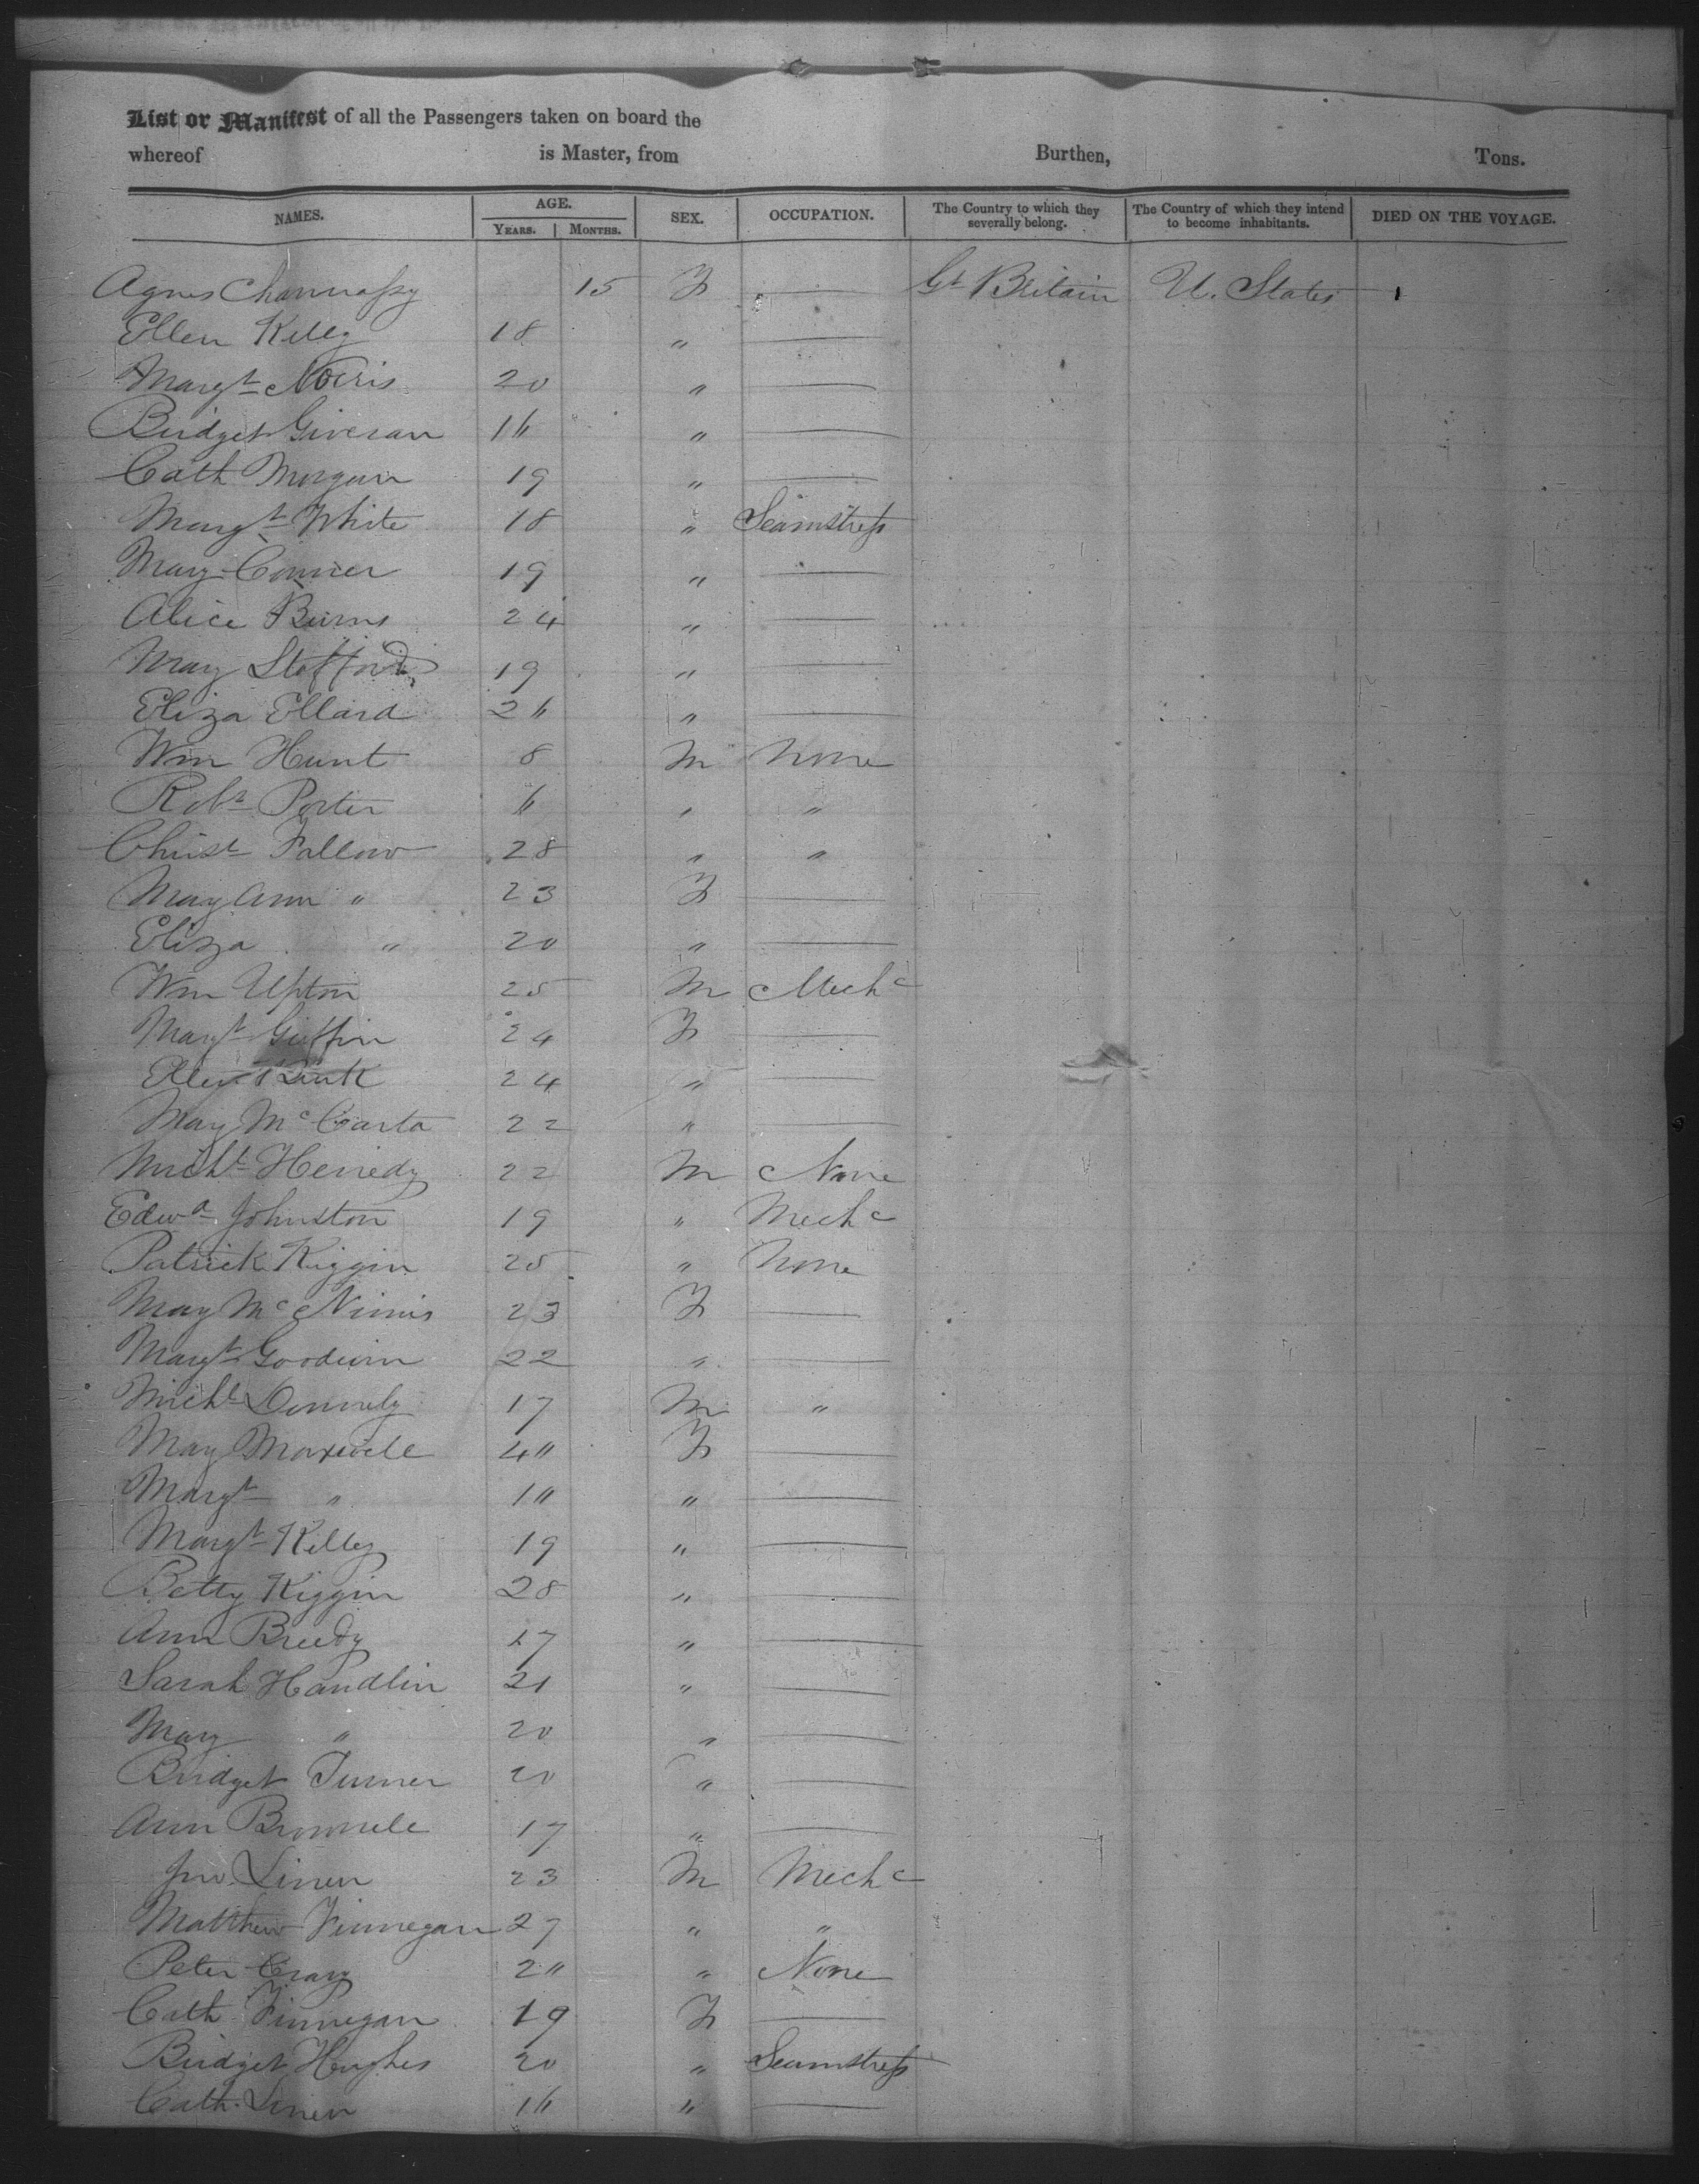 List or Manifest of all the Passengers taken on board the
whereof is Master, from Burthen, Tons.
NAMES. AGE. SEX. OCCUPATION. The Country to which they severally belong. The Country of which they intend to become inhabitants. DIED ON THE VOYAGE.
YEARS. MONTHS.
Agnes 15 F — Gt Britain U. States
Ellen Kelly 18 " —
Margt Norris 20 " —
Bridget Giveran 16 " —
Cath Morgan 19 " —
Margt White 18 " Seamstress
Mary Conner 19 " —
Alice Burns 24 " —
Mary Stafford 19 " —
Eliza Ellard 26 " —
Wm Hunt 8 M None
Robt Porter 6 " "
Christ Fallow 28 " "
Mary Ann " 23 F —
Eliza " 20 " —
Wm Upton 25 M Mechc
Margt Griffin 24 F —
Ellen 24 " —
Mary McCarta 22 " —
Michl 22 M None
Edwd Johnston 19 " Mechc
Patrick Kiggin 25 " None
Mary McNinis 23 F —
Margt Goodwin 22 " —
Michl Donnely 17 M "
Mary Maxwell 40 F —
Margt " 10 " —
Margt Kelley 19 " —
Betty Kiggin 28 " —
Ann Breedy 17 " —
Sarah Handlin 21 " —
Mary " 20 " —
Bridget Turner 20 " —
Ann Brownele 17 " —
Jno. Linen 23 M Mechc
Matthew Finnegan 27 " "
Peter Crary 20 " None
Cath Finnegan 19 F —
Bridget Hughes 20 " Seamstress
Cath. Linen 16 " —